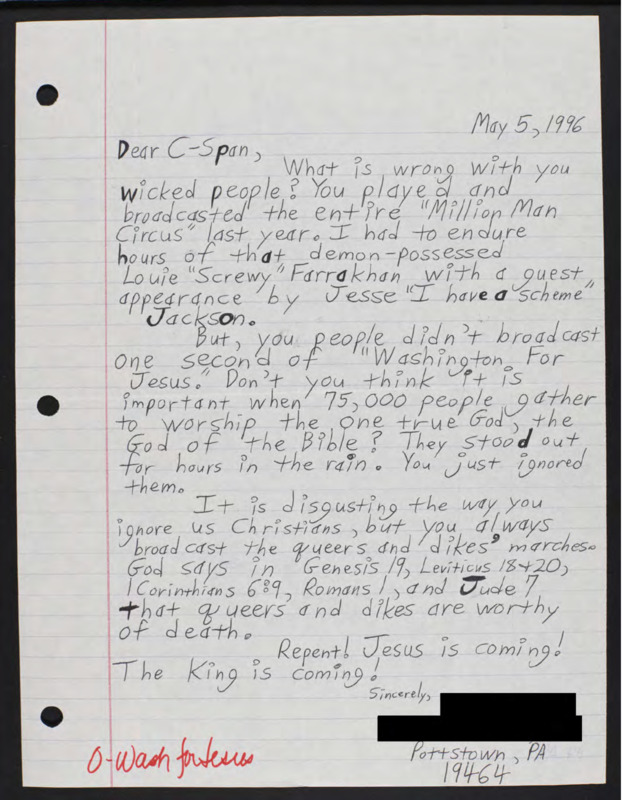 May 5, 1996
Dear C-Span,
What is wrong with you
wicked people? You played and
broadcasted the entire "Million Man
Circus" last year. I had to endure
hours of that demon-possessed
Louie "Screwy" Farrakhan with a guest
appearance by Jesse "I have a scheme"
Jackson.
But, you people didn't broadcast
one second of "Washington For
Jesus." Don't you think it is
important when 75,000 people gather
to worship the one true God, the
God of the Bible? They stood out
for hours in the rain. You just ignored
them.
It is disgusting the way you
ignore us Christians, but you always
broadcast the queers and dikes' marches.
God says in Genesis 19, Leviticus 18+20,
1 Corinthians 6:9, Romans 1, and Jude 7
that queers and dikes are worthy
of death.
Repent! Jesus is coming!
The King is coming!
Sincerely,
Pottstown, PA
19464
O-Wash for Jesus